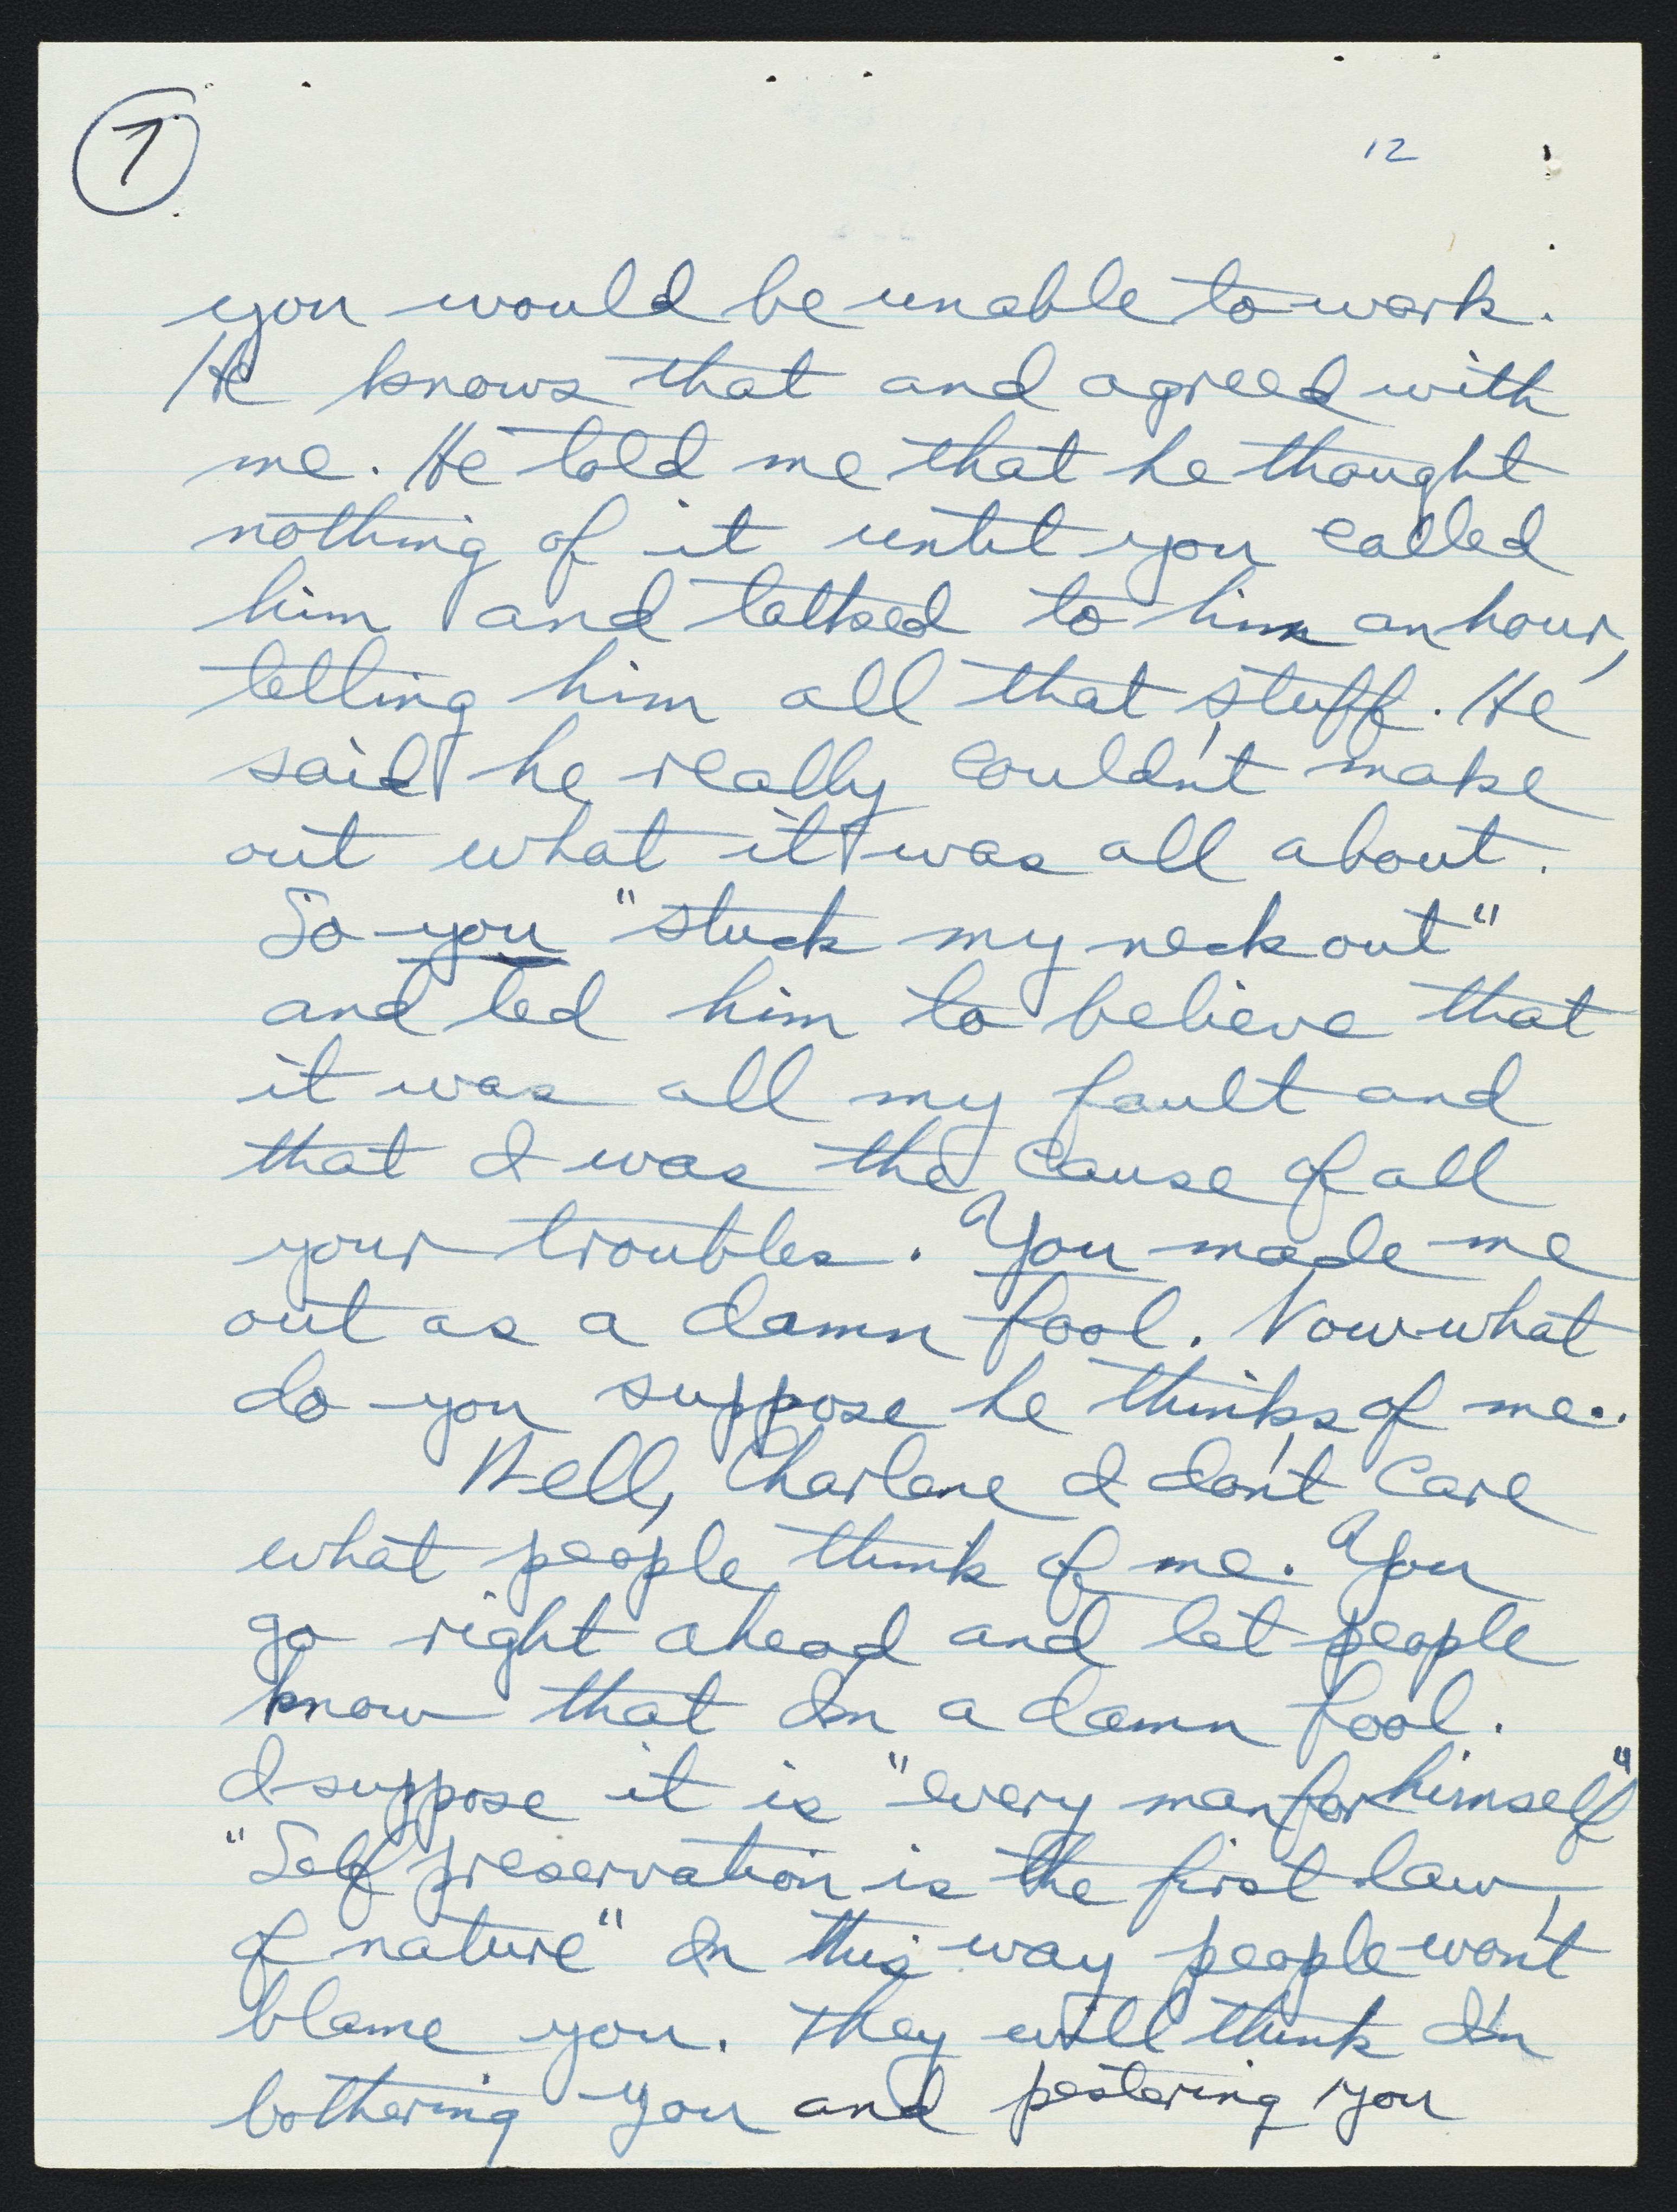 7
12
you would be unable to work.
He knows that and agreed with
me. He told me that he thought
nothing of it until you called
him and talked to him an hour,
telling him all that stuff. He
said he really couldn't make
out what it was all about.
So you "stuck my neck out"
and led him to believe that
it was all my fault and
that I was the cause of all
your troubles. You made me
out as a damn fool. Now what
do you suppose he thinks of me..
Well, Charlene I don't care
what people think of me. You
go right ahead and let people
know that I'm a damn fool.
I suppose it is "every man for himself"
"Self preservation is the first law
of nature" In this way people won't
blame you. They will think I'm
bothering you and pestering you